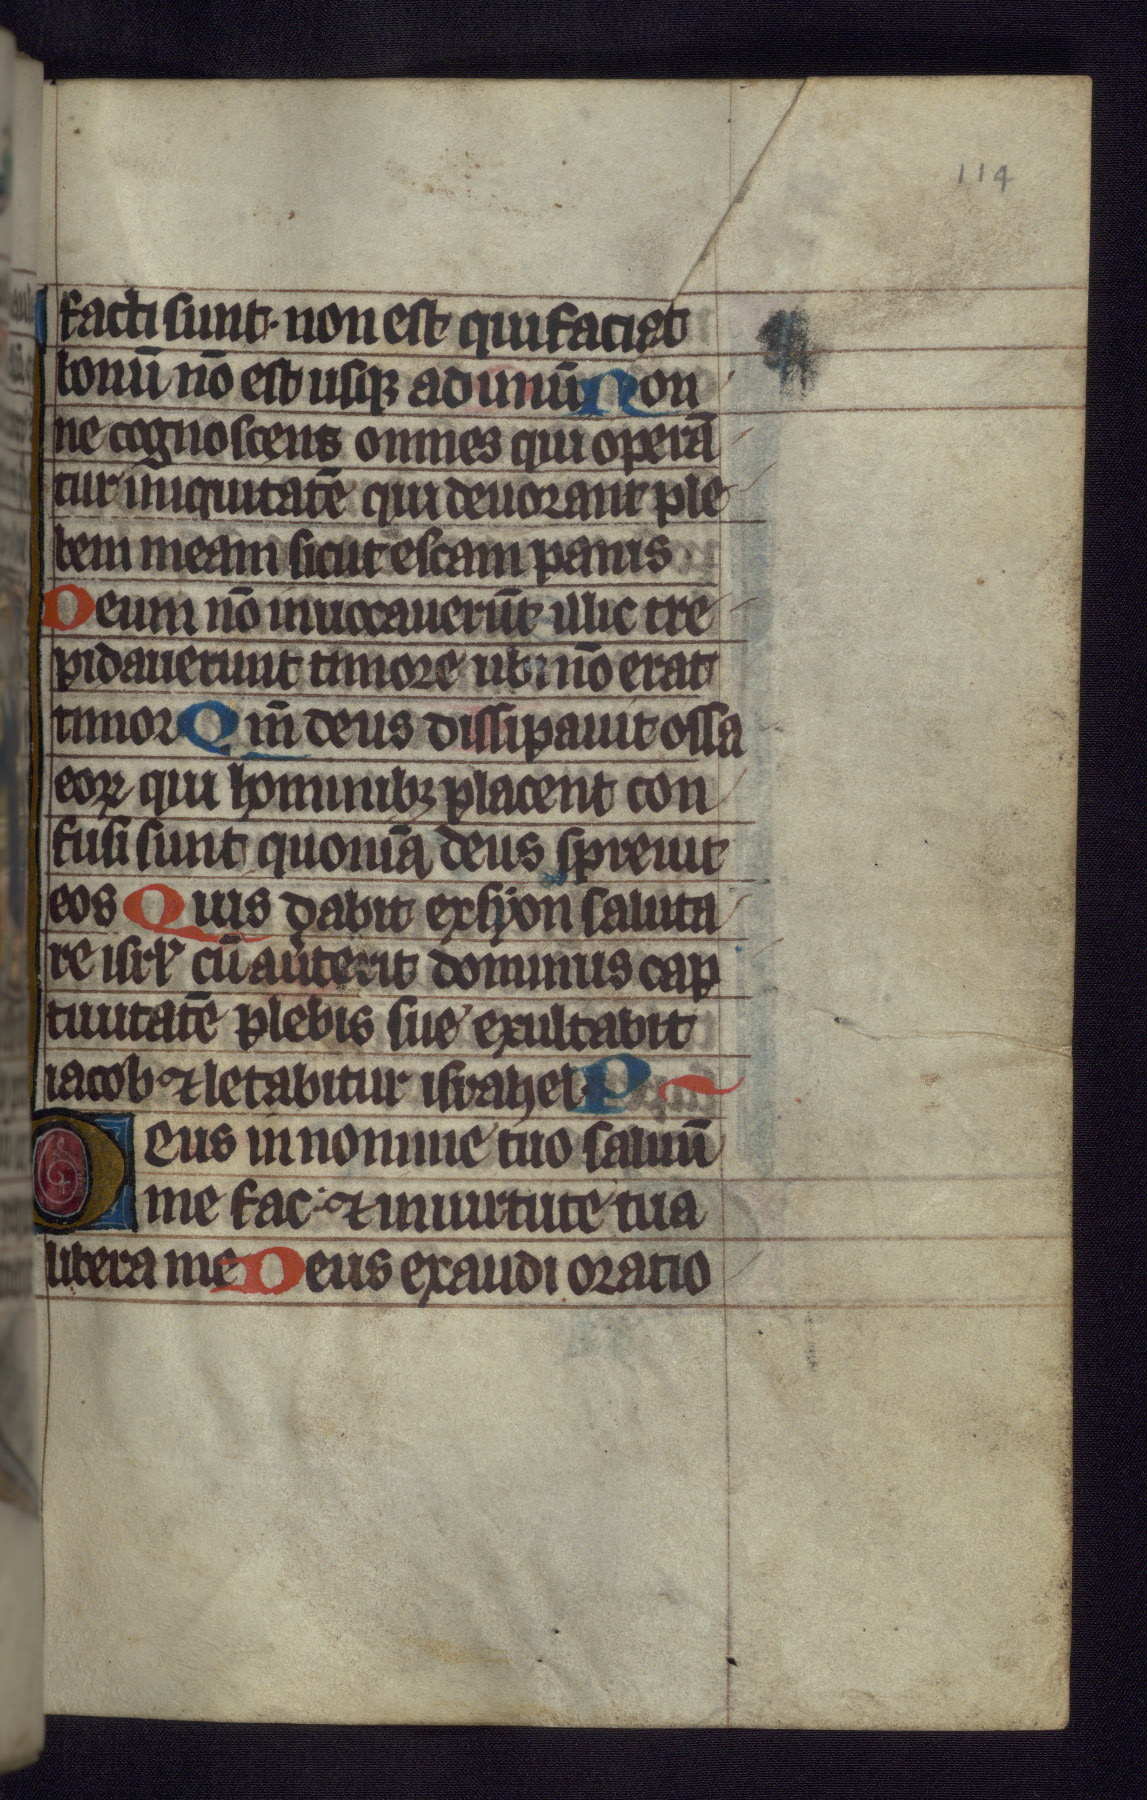 114
facti sunt· non est qui faciat
bonū nō est usqꝫ ad unū Non
ne cognoscent omnes qui operā
tur iniquitatē qui devorant ple
bem meam sicut escam panis
Deum nō invocaverūt illic tre
pidaverunt timore ubi nō erat
timor Qm̄ deus dissipavit ossa
eoꝝ qui hominibꝫ placent con
fusi sunt quoniā deus sprevit
eos Quis dabit ex syon saluta
re isrl̓ cū avterit dominus cap
tivitatē plebis sue exultabit
iacob ⁊ letabitur israhel P̃
Deus in nomine tuo salvū
me fac· ⁊ in virtute tua
libera me Deus exaudi oratio